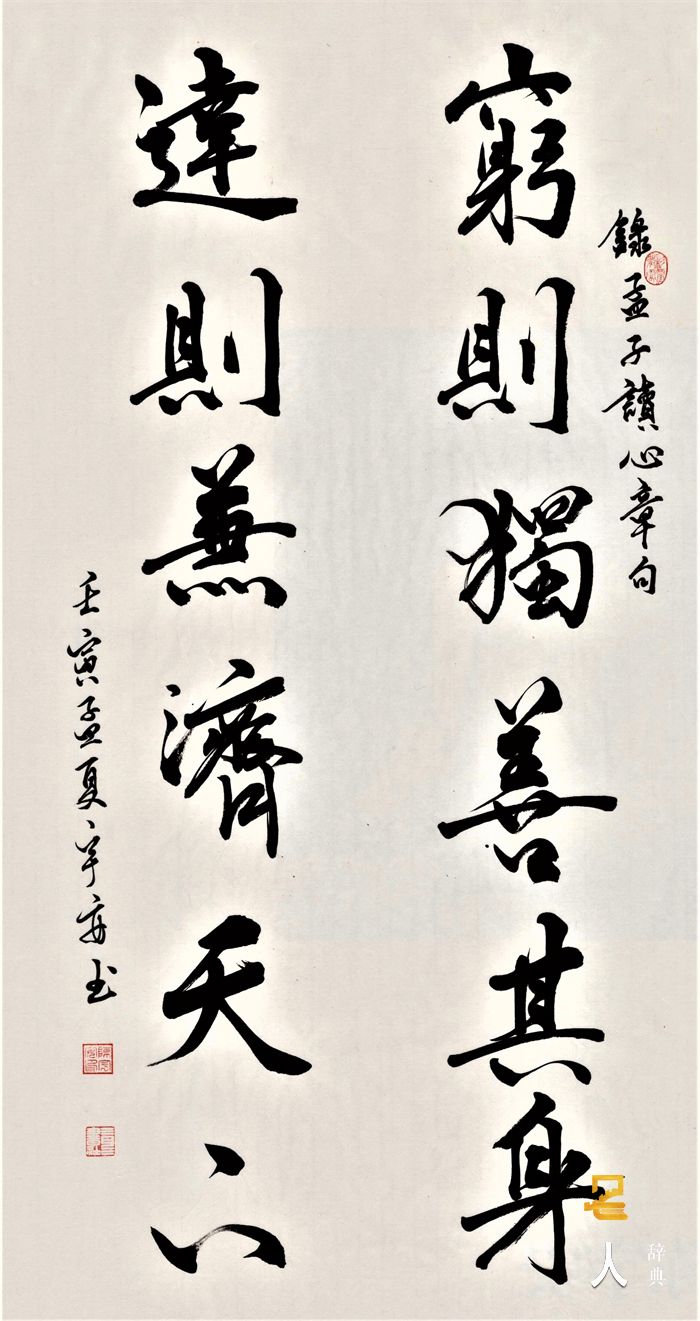 錄孟子讀心章句
窮則獨善其身
達則兼濟天下
壬寅孟夏书
名人
辞典